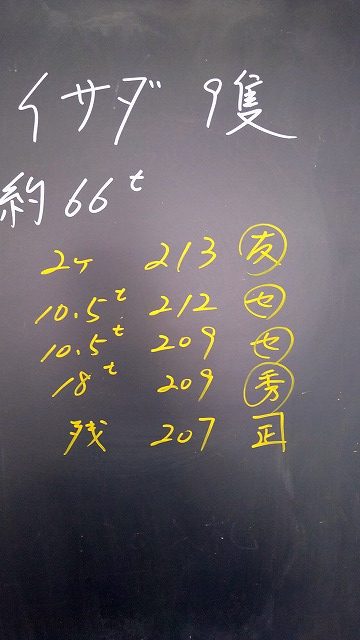 イサダ 9隻
約66t
2ヶ 213 友
10.5t 212 セ
10.5t 209 セ
18t 209 秀
残 207